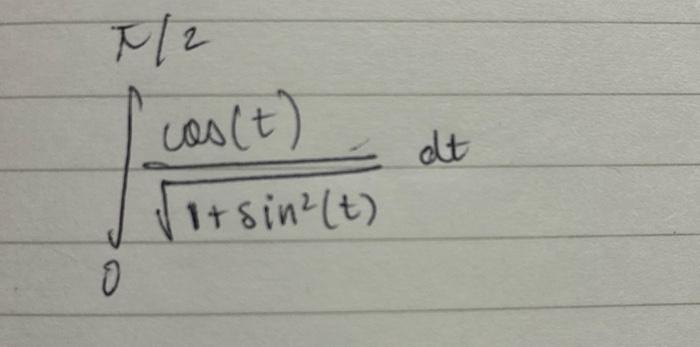 π/2
∫ cos(t) / √(1+sin²(t)) dt
0